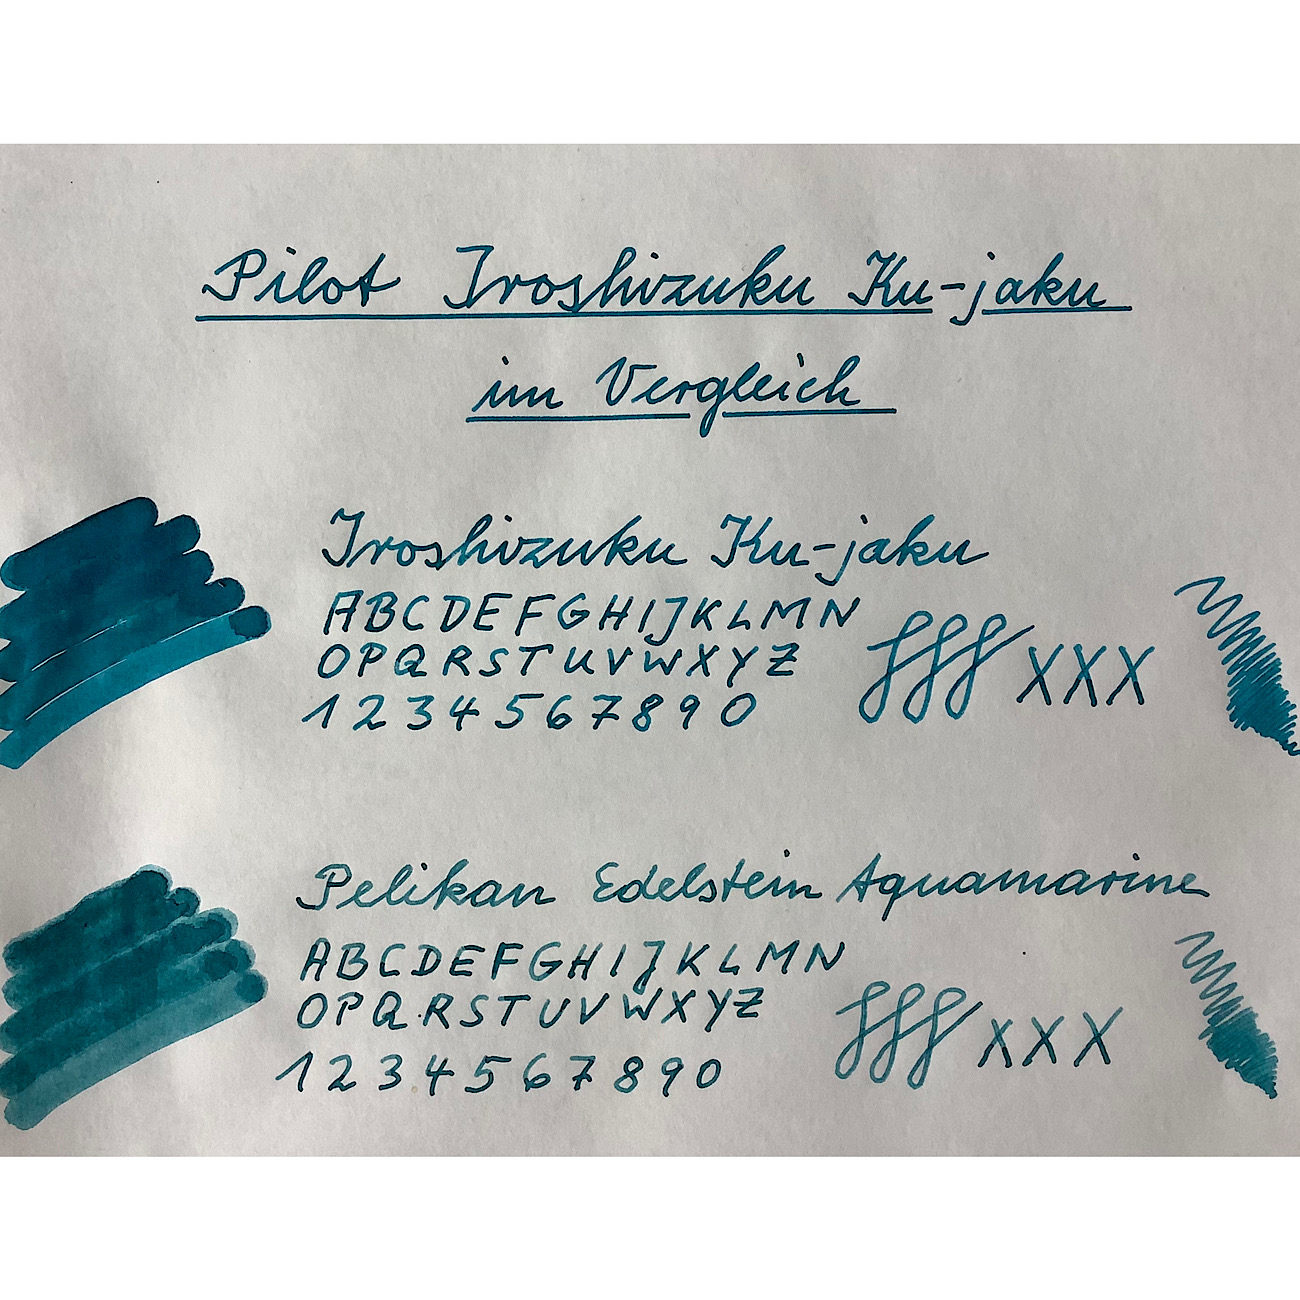 Pilot Iroshizuku Ku-jaku
im Vergleich
Iroshizuku Ku-jaku
ABCDEFGHIJKLMN
OPQRSTUVWXYZ
1234567890
fff XXX
Pelikan Edelstein Aquamarine
ABCDEFGHIJKLMN
OPQRSTUVWXYZ
1234567890
fff XXX